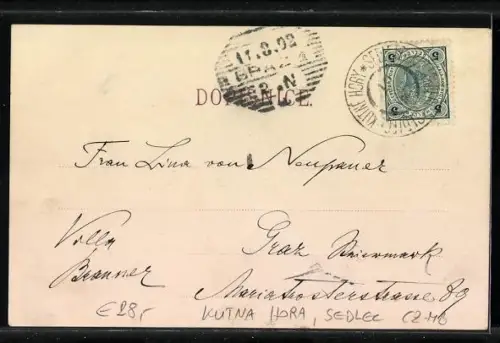 17.8.02
GRAZ 1
DOPISNICE.
KUTNÉ HORY
5 5
Frau Lina von Neupauer
Villa
Brauner
Graz Steiermark
Mariatrosterstrasse 89
€28,-
KUTNA HORA, SEDLEC CZ-HB